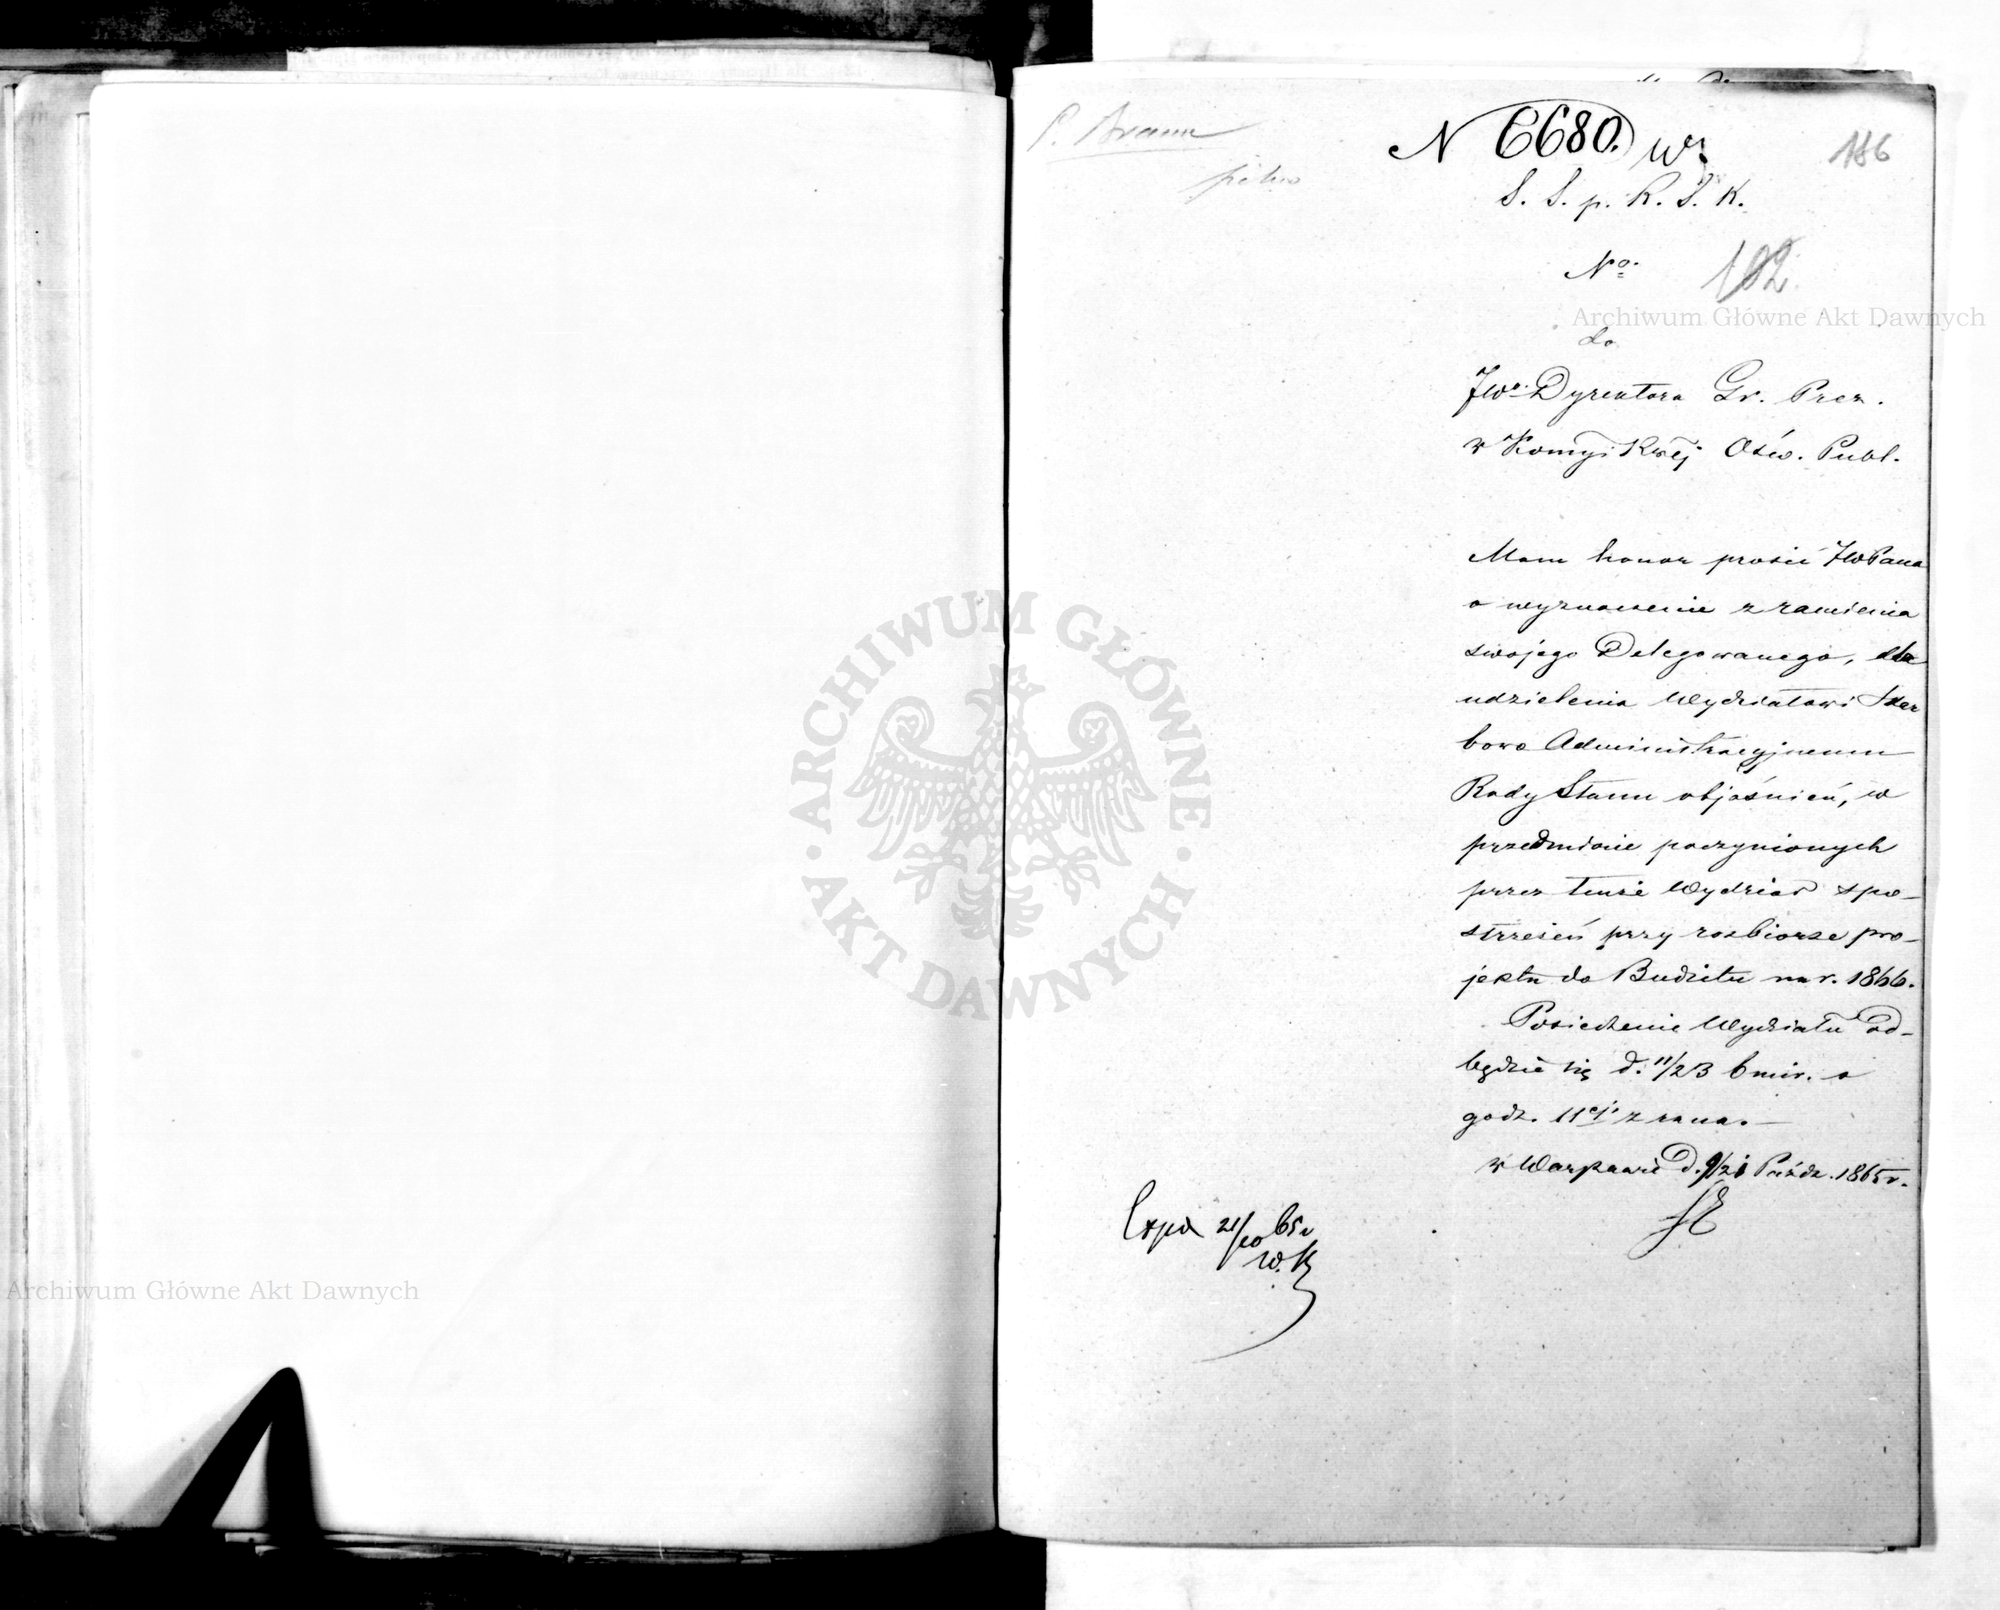 P. Braun
pilno
N 6680. Wr
186
S. S. p. R. S. K.
No. 182.
do
JWo. Dyrektora Gł. Prez.
w Komyi Rwej Ośw. Publ.
Mam honor prosić JWPana
o wyznaczenie z ramienia
swojego Delegowanego, dla
udzielenia Wydziałowi Skar
bowo Administracyjnemu
Rady Stanu objaśnień, w
przedmiocie poczynionych
przez tenże Wydział spo-
strzeżeń przy rozbiorze pro-
jektu do Budżetu na r. 1866.
Posiedzenie Wydziału od-
będzie się d. 11/23 b m i r. o
godz. 11ej z rana.
w Warszawie d. 9/21 Paźdz. 1865 r.
Exped 21/10 65 r
W. K
Archiwum Główne Akt Dawnych
Archiwum Główne Akt Dawnych
ARCHIWUM GŁÓWNE
AKT DAWNYCH